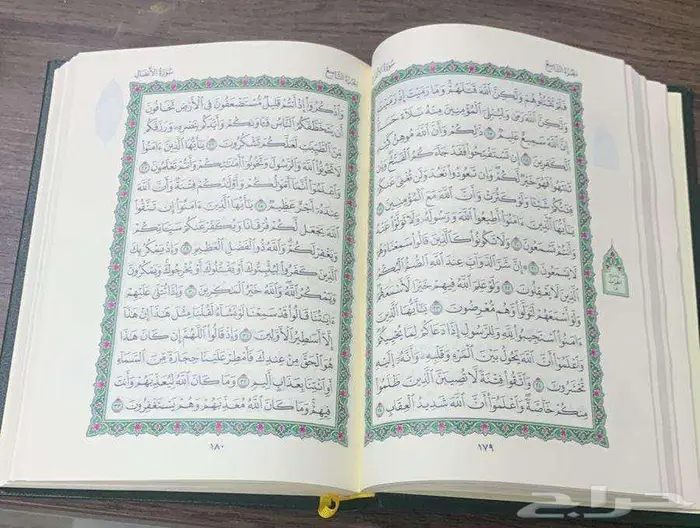 الجزء التاسع
سورة
فَلَمْ تَقْتُلُوهُمْ وَلَٰكِنَّ ٱللَّهَ قَتَلَهُمْ وَمَا رَمَيْتَ إِذْ رَمَيْتَ
وَلَٰكِنَّ ٱللَّهَ رَمَىٰ وَلِيُبْلِىَ ٱلْمُؤْمِنِينَ مِنْهُ بَلَآءً حَسَنًا
إِنَّ ٱللَّهَ سَمِيعٌ عَلِيمٌ ١٧ ذَٰلِكُمْ وَأَنَّ ٱللَّهَ مُوهِنُ كَيْدِ
ٱلْكَٰفِرِينَ ١٨ إِن تَسْتَفْتِحُوا۟ فَقَدْ جَآءَكُمُ ٱلْفَتْحُ وَإِن
تَنتَهُوا۟ فَهُوَ خَيْرٌ لَّكُمْ وَإِن تَعُودُوا۟ نَعُدْ وَلَن تُغْنِىَ عَنكُمْ
فِئَتُكُمْ شَيْـًٔا وَلَوْ كَثُرَتْ وَأَنَّ ٱللَّهَ مَعَ ٱلْمُؤْمِنِينَ ١٩
يَٰٓأَيُّهَا ٱلَّذِينَ ءَامَنُوٓا۟ أَطِيعُوا۟ ٱللَّهَ وَرَسُولَهُۥ وَلَا تَوَلَّوْا۟ عَنْهُ
وَأَنتُمْ تَسْمَعُونَ ٢٠ وَلَا تَكُونُوا۟ كَٱلَّذِينَ قَالُوا۟ سَمِعْنَا وَهُمْ
لَا يَسْمَعُونَ ٢١ إِنَّ شَرَّ ٱلدَّوَآبِّ عِندَ ٱللَّهِ ٱلصُّمُّ ٱلْبُكْمُ
ٱلَّذِينَ لَا يَعْقِلُونَ ٢٢ وَلَوْ عَلِمَ ٱللَّهُ فِيهِمْ خَيْرًا لَّأَسْمَعَهُمْ
وَلَوْ أَسْمَعَهُمْ لَتَوَلَّوا۟ وَّهُم مُّعْرِضُونَ ٢٣ يَٰٓأَيُّهَا ٱلَّذِينَ
ءَامَنُوا۟ ٱسْتَجِيبُوا۟ لِلَّهِ وَلِلرَّسُولِ إِذَا دَعَاكُمْ لِمَا يُحْيِيكُمْ
وَٱعْلَمُوٓا۟ أَنَّ ٱللَّهَ يَحُولُ بَيْنَ ٱلْمَرْءِ وَقَلْبِهِۦ وَأَنَّهُۥٓ إِلَيْهِ
تُحْشَرُونَ ٢٤ وَٱتَّقُوا۟ فِتْنَةً لَّا تُصِيبَنَّ ٱلَّذِينَ ظَلَمُوا۟
مِنكُمْ خَآصَّةً وَٱعْلَمُوٓا۟ أَنَّ ٱللَّهَ شَدِيدُ ٱلْعِقَابِ ٢٥
١٧٩
الجزء التاسع
سورة الأنفال
وَٱذْكُرُوٓا۟ إِذْ أَنتُمْ قَلِيلٌ مُّسْتَضْعَفُونَ فِى ٱلْأَرْضِ تَخَافُونَ
أَن يَتَخَطَّفَكُمُ ٱلنَّاسُ فَـَٔاوَىٰكُمْ وَأَيَّدَكُم بِنَصْرِهِۦ وَرَزَقَكُم
مِّنَ ٱلطَّيِّبَٰتِ لَعَلَّكُمْ تَشْكُرُونَ ٢٦ يَٰٓأَيُّهَا ٱلَّذِينَ ءَامَنُوا۟
لَا تَخُونُوا۟ ٱللَّهَ وَٱلرَّسُولَ وَتَخُونُوٓا۟ أَمَٰنَٰتِكُمْ وَأَنتُمْ تَعْلَمُونَ ٢٧
وَٱعْلَمُوٓا۟ أَنَّمَآ أَمْوَٰلُكُمْ وَأَوْلَٰدُكُمْ فِتْنَةٌ وَأَنَّ ٱللَّهَ
عِندَهُۥٓ أَجْرٌ عَظِيمٌ ٢٨ يَٰٓأَيُّهَا ٱلَّذِينَ ءَامَنُوٓا۟ إِن تَتَّقُوا۟
ٱللَّهَ يَجْعَل لَّكُمْ فُرْقَانًا وَيُكَفِّرْ عَنكُمْ سَيِّـَٔاتِكُمْ
وَيَغْفِرْ لَكُمْ وَٱللَّهُ ذُو ٱلْفَضْلِ ٱلْعَظِيمِ ٢٩ وَإِذْ يَمْكُرُ بِكَ
ٱلَّذِينَ كَفَرُوا۟ لِيُثْبِتُوكَ أَوْ يَقْتُلُوكَ أَوْ يُخْرِجُوكَ وَيَمْكُرُونَ
وَيَمْكُرُ ٱللَّهُ وَٱللَّهُ خَيْرُ ٱلْمَٰكِرِينَ ٣٠ وَإِذَا تُتْلَىٰ عَلَيْهِمْ
ءَايَٰتُنَا قَالُوا۟ قَدْ سَمِعْنَا لَوْ نَشَآءُ لَقُلْنَا مِثْلَ هَٰذَآ إِنْ هَٰذَآ
إِلَّآ أَسَٰطِيرُ ٱلْأَوَّلِينَ ٣١ وَإِذْ قَالُوا۟ ٱللَّهُمَّ إِن كَانَ هَٰذَا
هُوَ ٱلْحَقَّ مِنْ عِندِكَ فَأَمْطِرْ عَلَيْنَا حِجَارَةً مِّنَ ٱلسَّمَآءِ
أَوِ ٱئْتِنَا بِعَذَابٍ أَلِيمٍ ٣٢ وَمَا كَانَ ٱللَّهُ لِيُعَذِّبَهُمْ وَأَنتَ
فِيهِمْ وَمَا كَانَ ٱللَّهُ مُعَذِّبَهُمْ وَهُمْ يَسْتَغْفِرُونَ ٣٣
١٨٠
حراج